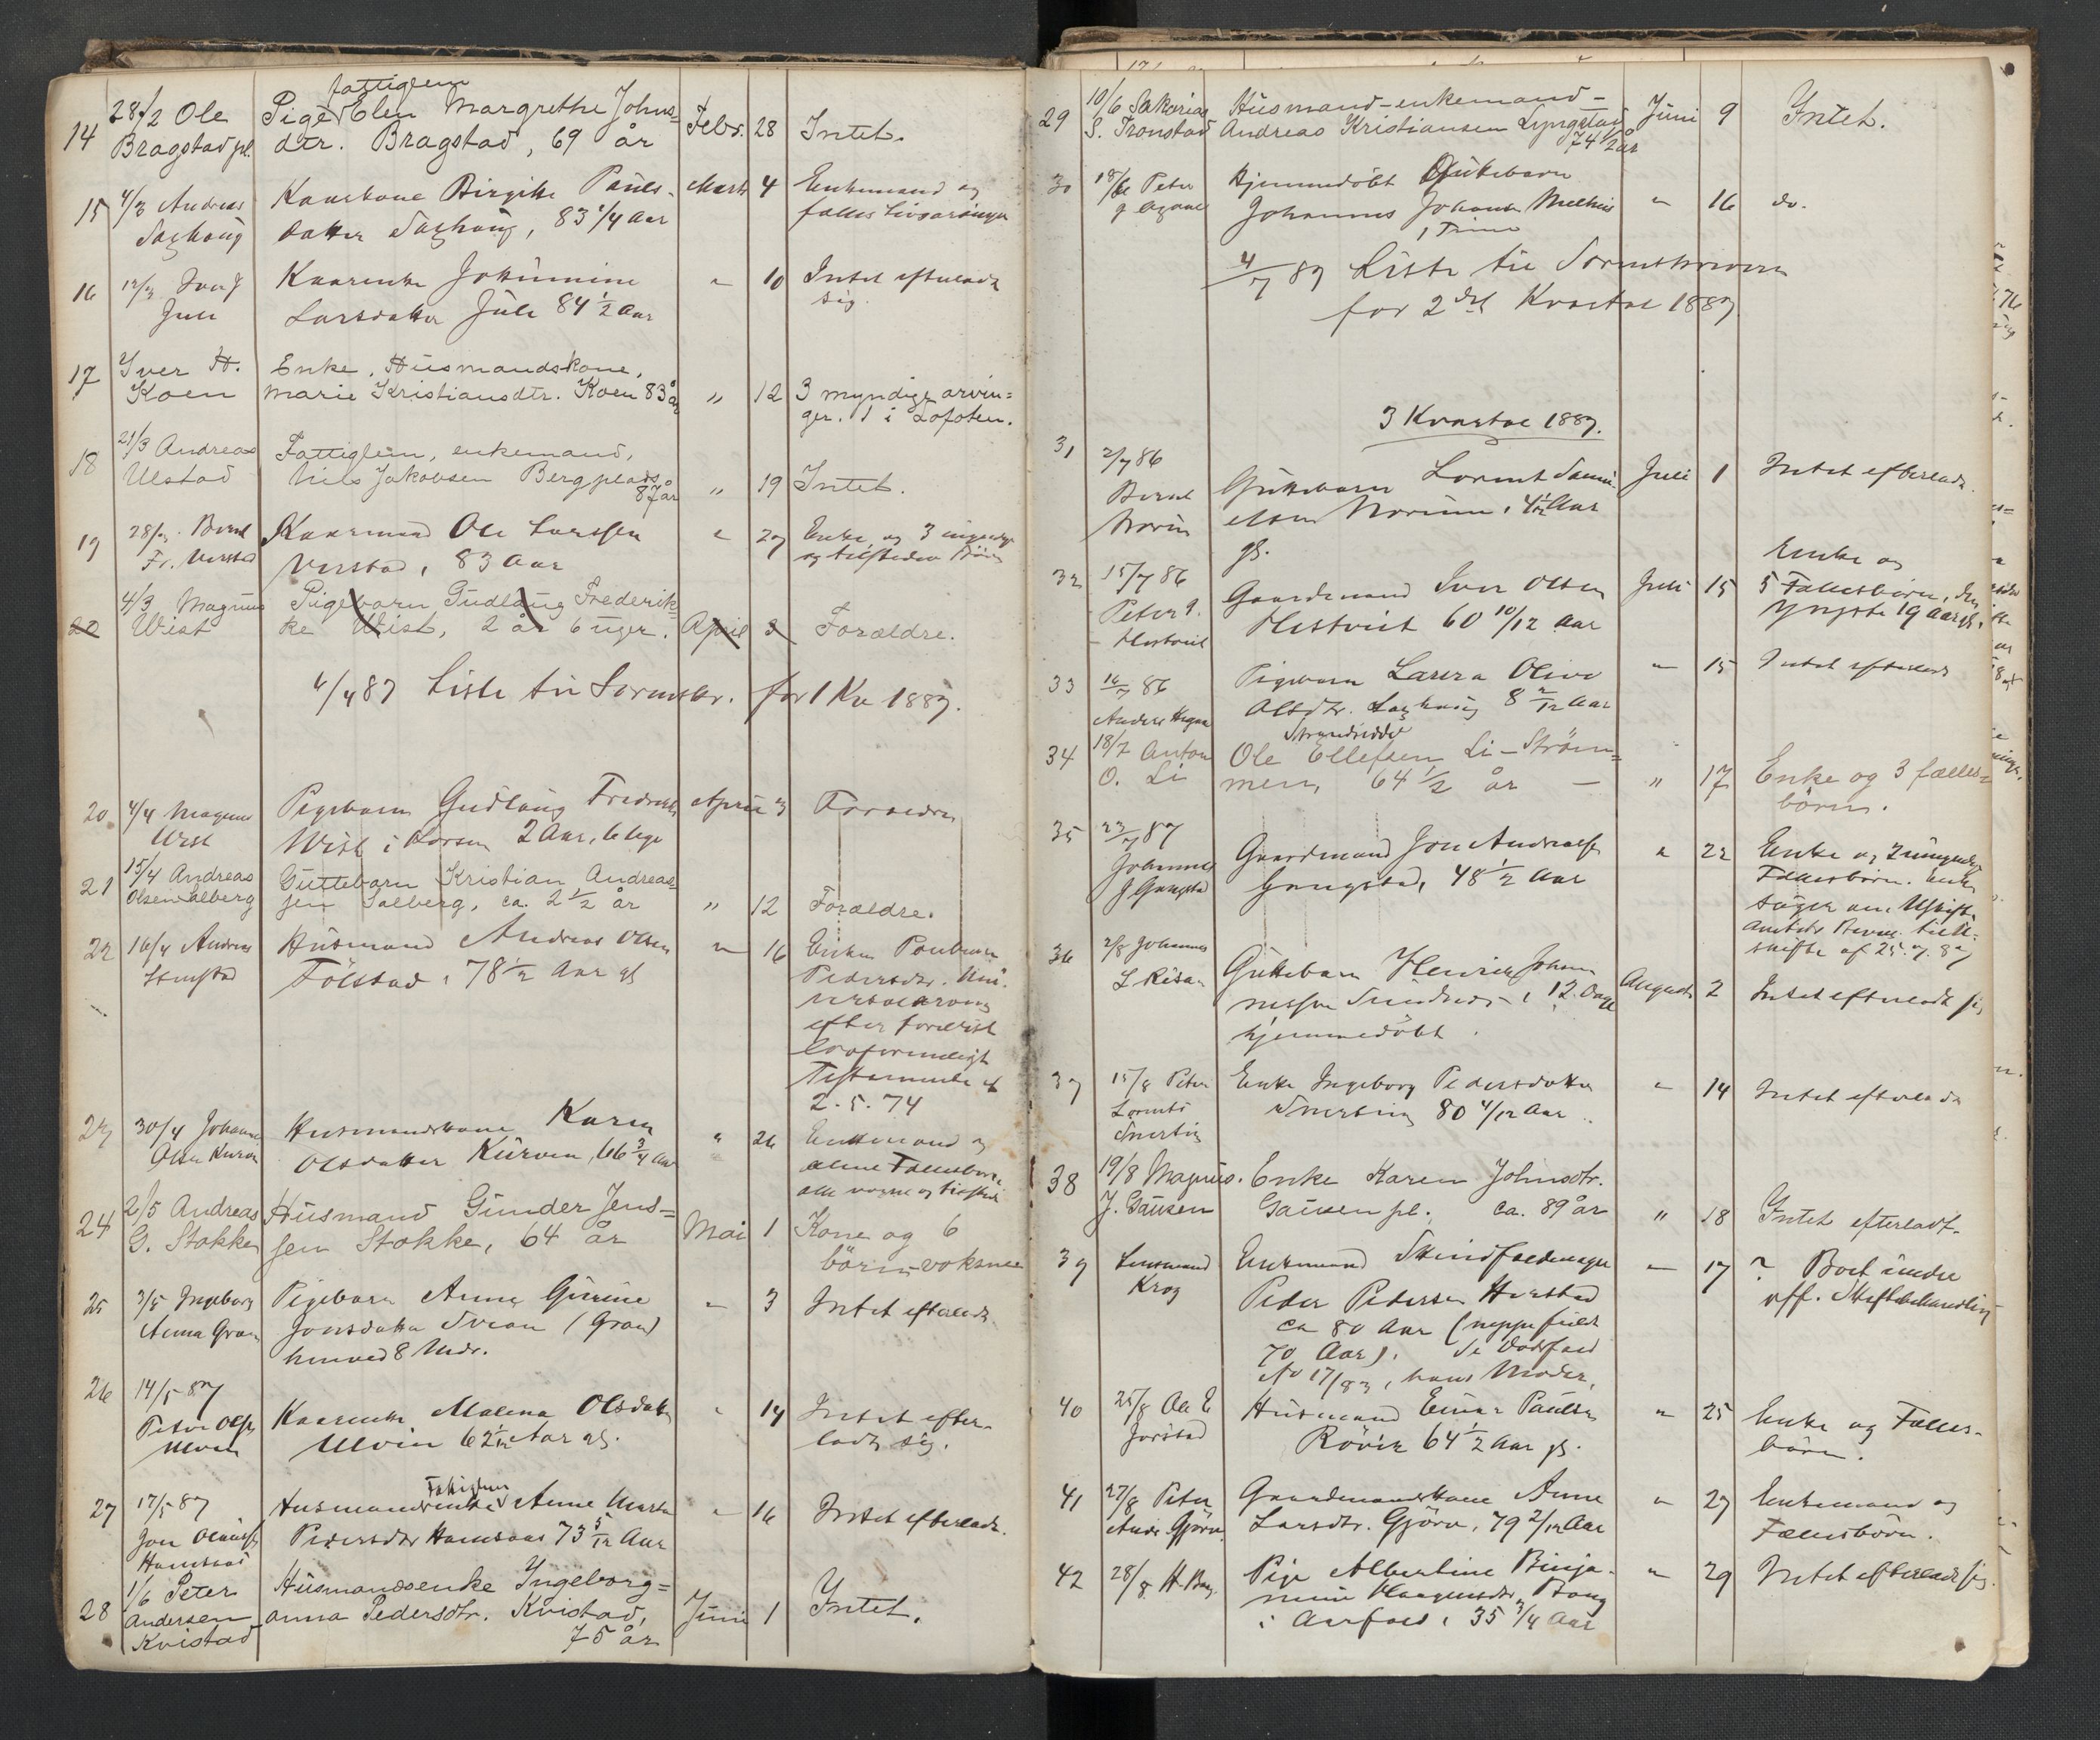 14 28/2 Ole Pige fattiglem Elen Margrethe Johns= Febr. 28 Intet.
Bragstad pl. dtr. Bragstad, 69 år
15 4/3 Andreas Kaarkone Birgithe Pauls- Marts 4 Enkemand og
Saxhaug datter Saxhaug, 83 1/4 Aar fælles Livsarvinger
16 12/3 Juul Kaarenke Johannine " 10 Intet efterladt
Larsdatter Jule 84 1/2 Aar sig.
17 Iver H. Enke, Husmandskone,
Koen Marie Kristiansdtr. Koen 83 år " 12 3 myndige arvin=
ger. 1 i Lofoten.
18 21/3 Andreas Fattiglem, enkemand,
Ulstad Nils Jakobsen Bergplads, " 19 Intet.
87 år
19 28/3 Bernt Kaarmand Ole Larssen " 27 Enke og 3 myndige
Fr. Verstad Verstad, 83 Aar og tilstedev. Børn
20 4/3 Magnus Pigebarn Gudlaug Frederik=
Wist ke Wist, 2 år 6 uger. April 3 Forældre.
4/4 87 Liste til Sorenskr. for 1 Kv 1887.
20 4/4 Magnus Pigebarn Gudlaug Fredrikke April 3 Forældre
Wist Wist 2 Aar, 6 Uger
21 15/4 Andreas Guttebarn Kristian Andreas=
Olsen Salberg sen Salberg, ca. 2 1/2 år " 12 Forældre.
22 16/4 Andreas Husmand Andreas Olsen " 16 Enken
Følstad, 78 1/2 Aar gl Pedersdr. Uni-
versalarving
efter
lovformeligt
Testamente af
2.5.74
23 30/4 Johannes Husmandskone Karen " 26 Enkemand og
Olsen Kurven Olsdatter Kurven, 66 3/4 Aar Fællesbørn
alle voxne og tilsted.
24 2/5 Andreas Husmand Gunder Jens= Mai 1 Kone og 6
G. Stokke sen Stokke, 64 år børn voksne
25 3/5 Ingeborg Pigebarn Anna Gurine " 3 Intet efterladt
Anna Gran Jonsdatter (Gran)
henved 8 Mdr.
26 14/5 87
Peter Ols. Kaarenke Malena Olsdatter " 14 Intet efter-
Ulvin Ulvin 62 1/12 Aar gl. ladt sig.
27 17/5 87 Husmandsenke Fattiglem Anne Marta " 16 Intet efterladt.
Jon Pedersdr Hamsaas 73 5/12 Aar
Hamsaas
1/6 Peter Husmandsenke Ingeborg=
28 Andersen anna Pedersdtr. Kvistad, Juni 1 Intet.
Kvistad 75 år
29 10/6 Sakarias Husmand-enkemand- Juni 9 Intet.
S. Tronstad Andreas Kristiansen Lyngstad
74 1/2 år
30 18/6 Peter Hjemmedøbt Guttebarn
Johannes Johansen Melhus " 16 do.
1 Time
4/7 87 Liste til Sorenskriveren
for 2det Kvartal 1887
3 Kvartal 1887.
31 2/7 86
Bernt Guttebarn Lorents Juli 1 Intet efterladt.
Norum Norum, 4 1/2 Aar
gl.
32 15/7 86 Enke og
Peter Gaardmand Iver Olsen Juli 15 5 Fællesbørn, den
Hestvik Hestvik 60 10/12 Aar yngste 19 Aar gl.
33 16/7 86 Pigebarn Laura Olive " 15 Intet efterladt
Olsdtr. Saxhaug 8 2/12 Aar
34 18/7 Anton Ole Ellefsen Strandsidder Li-Strøm=
O. Li men, 64 1/2 år — " 17 Enke og 3 fælles=
børn.
35 23/7 87
Johannes Gaardmand Jon Andreas " 22 Enke og 2 umyndige
J Gangstad Gangstad, 48 1/2 Aar Fællesbørn. Enken
søger om Uskift.
Amtets Bevill. til
skifte af 25.7.87
36 2/8 Johannes
L Risan Guttebarn Henrik Johan- August 2 Intet efterladt sig
nessen 12 Dage
hjemmedøbt.
37 15/8 Peter Enke Ingeborg Pedersdatter " 14 Intet efterladt
Lorents 80 4/12 Aar
38 19/8 Magnus Enke Karen Johnsdtr.
J. Gausen Gausen pl. ca. 89 år " 18 Intet efterladt.
39 Lensmand Enkemand Skindfeldmager " 17 ? Boet under
Krog Peder Pedersen Hustad off. Skiftebehandling
ca 80 Aar (neppe fuldt
70 Aar). Se Dødsfald
No 17/83, hans Moder.
40 25/8 Ole E Husmand Einar Paulsen " 25 Enke og Fælles-
Jørstad Røvik 64 1/2 Aar gl. børn.
41 27/8 Peter Gaardmandskone Anne " 27 Enkemand og
Gjørv Larsdtr. Gjørv, 79 2/12 Aar Fællesbørn.
42 28/8 H Pige Albertine Binja- " 29 Intet efterladt sig.
mine
i 35 3/4 Aar